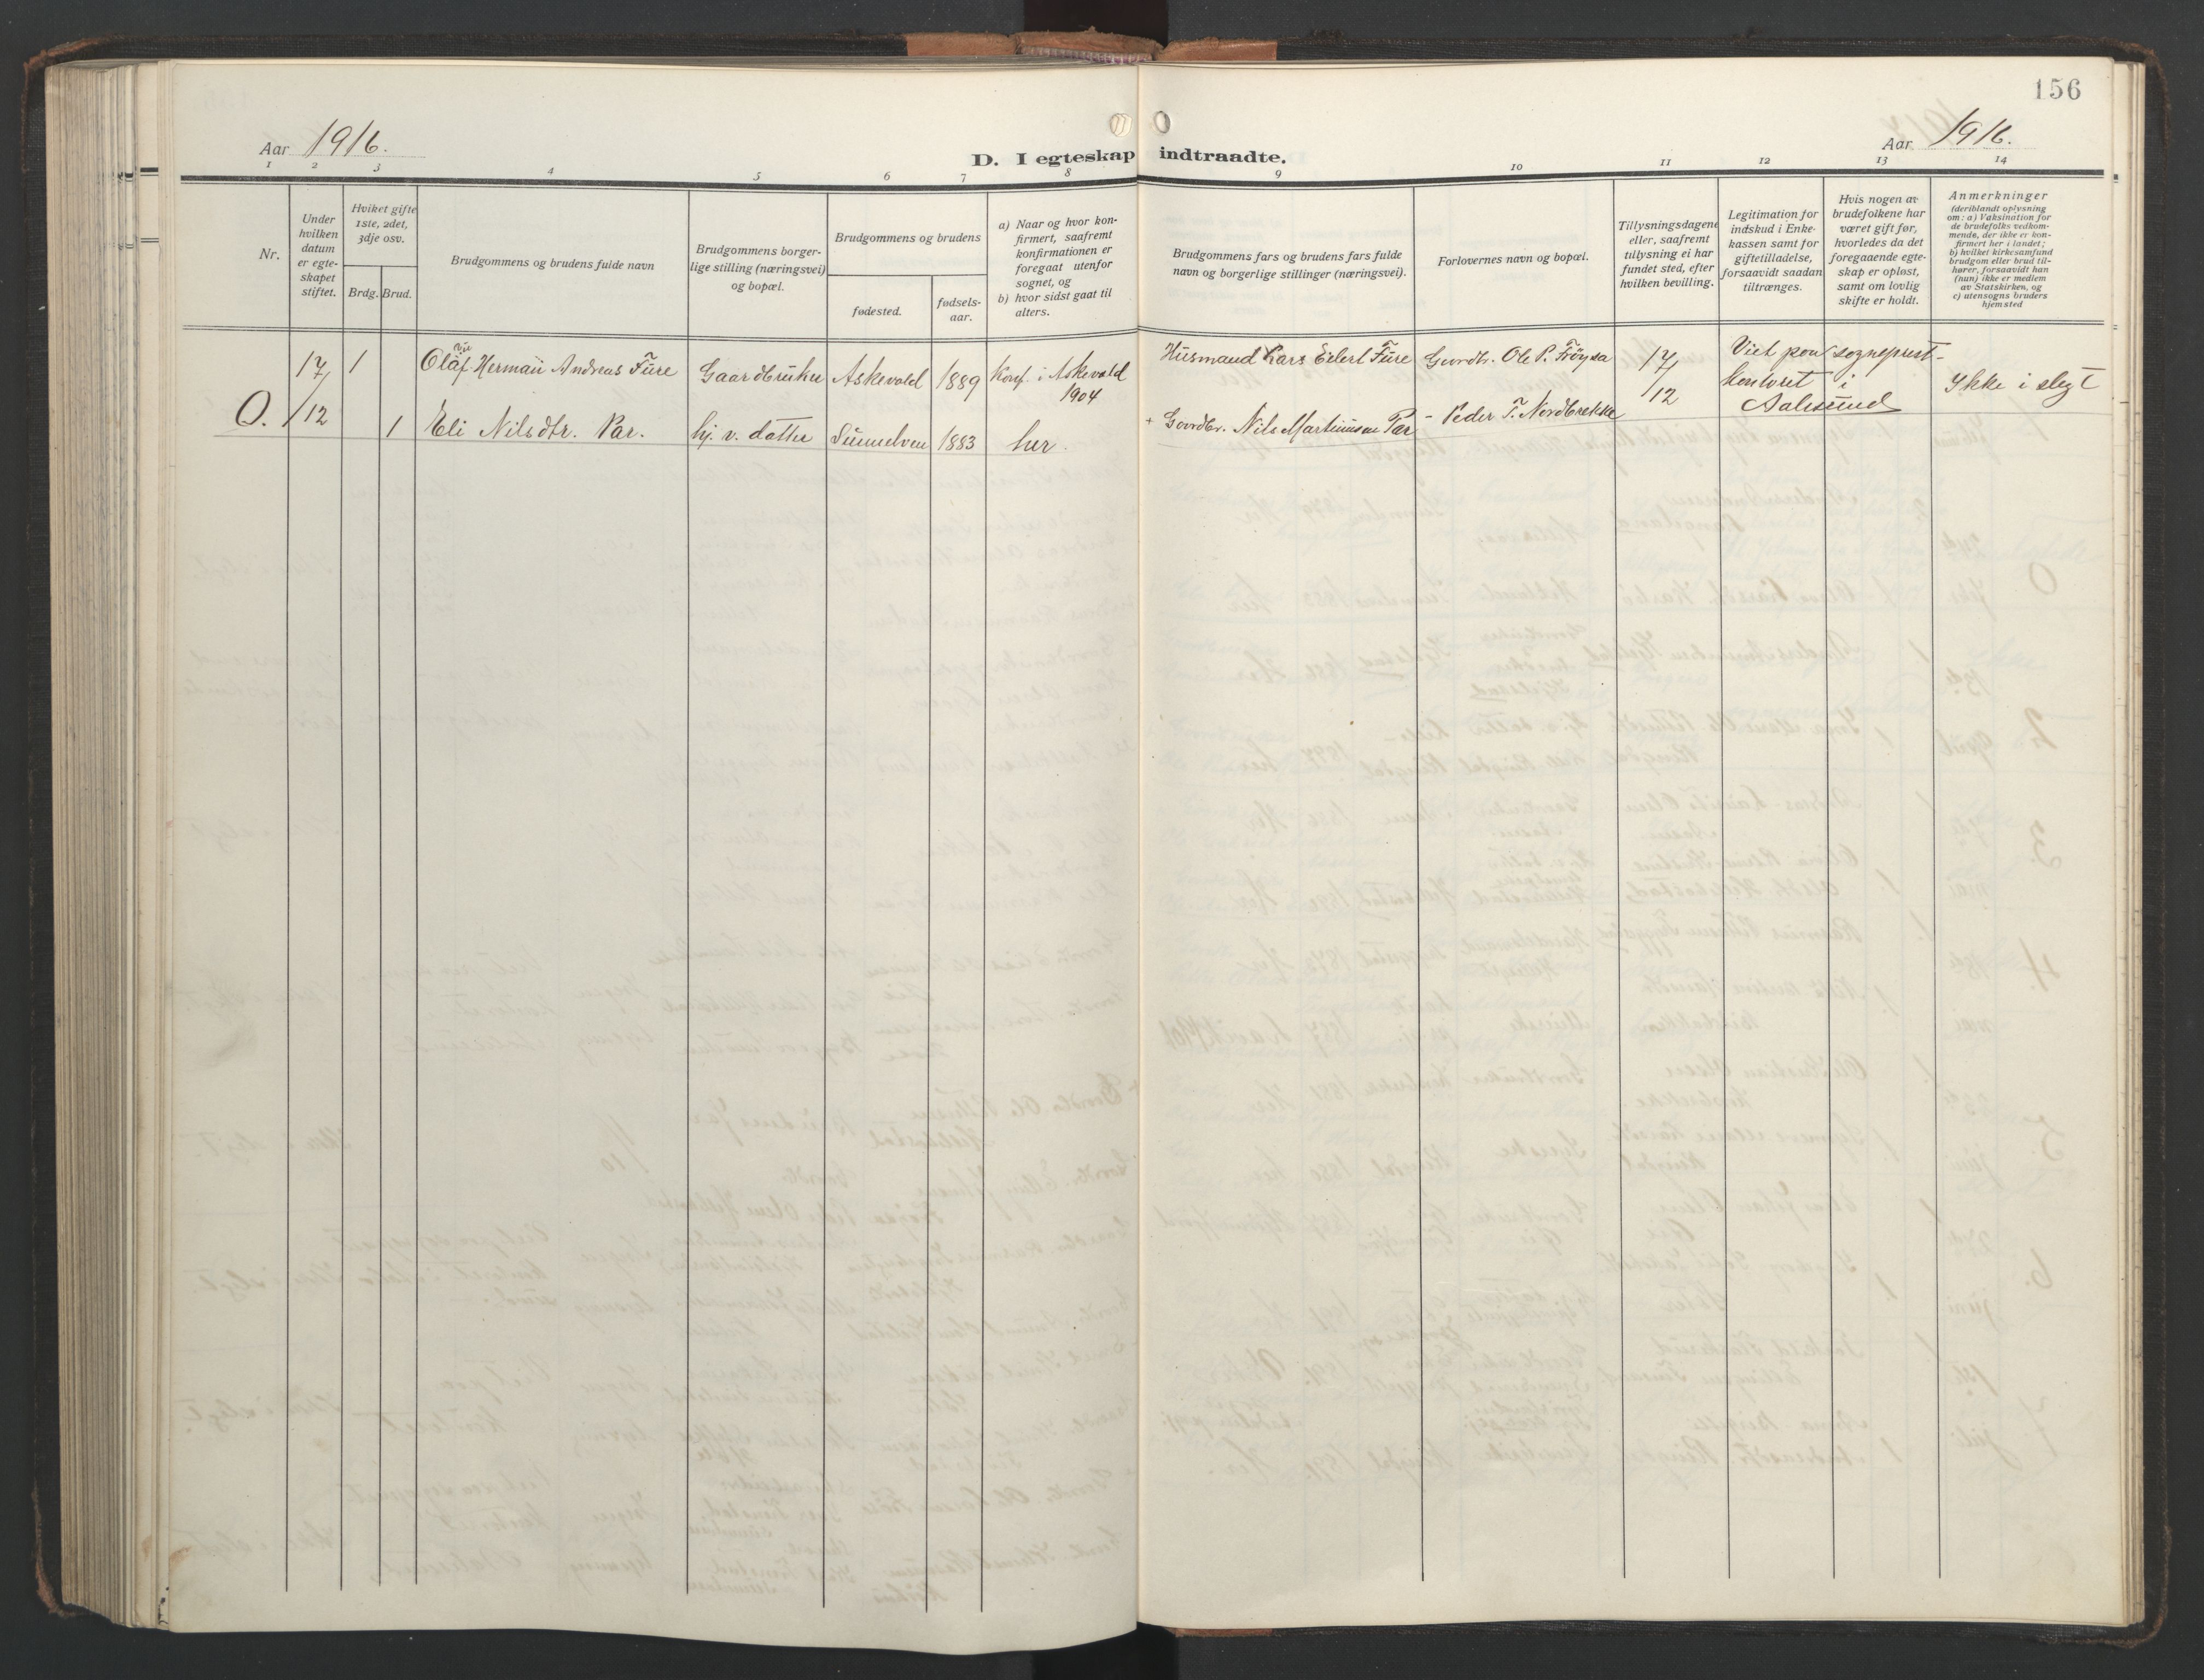 156
Aar 1916.
Aar 1916.
D. I egteskap indtraadte.
1 2 3 4 5 6 7 8 9 10 11 12 13 14
Nr.
Under
hvilken
datum
er egte-
skapet
stiftet.
Hvilket gifte
1ste, 2det,
3dje osv.
Brdg. Brud.
Brudgommens og brudens fulde navn
Brudgommens borger-
lige stilling (næringsvei)
og bopæl.
Brudgommens og brudens
fødested.
fødsels-
aar.
a) Naar og hvor kon-
firmert, saafremt
konfirmationen er
foregaat utenfor
sognet, og
b) hvor sidst gaat til
alters.
Brudgommens fars og brudens fars fulde
navn og borgerlige stillinger (næringsvei).
Forlovernes navn og bopæl.
Tillysningsdagene
eller, saafremt
tillysning ei har
fundet sted, efter
hvilken bevilling.
Legitimation for
indskud i Enke-
kassen samt for
giftetilladelse,
forsaavidt saadan
tiltrænges.
Hvis nogen av
brudefolkene har
været gift før,
hvorledes da det
foregaaende egte-
skap er opløst,
samt om lovlig
skifte er holdt.
Anmerkninger
(deriblandt oplysning
om: a) Vaksination for
de brudefolks vedkom-
mende, der ikke er kon-
firmert her i landet;
b) hvilket kirkesamfund
brudgom eller brud til-
hører, forsaavidt han
(hun) ikke er medlem
av Statskirken, og
c) utensogns bruders
hjemsted
O. 17/12
1 Olaf Herman Andreas Fure Gaardbruker Askevold 1889 Konf. i Askevold
1904
Husmand Lars Eilert Fure Gaardbr. Ole P. Frøysa 17/12 Viet paa sogneprest-
kontoret i
Aalesund
Ikke i slegt
1 Eli Nilsdtr. Par. hj. v. datter Sunnelven 1883 her.
+ Gaardbr. Nils Martinusen Par - Peder T. Nordbrekke